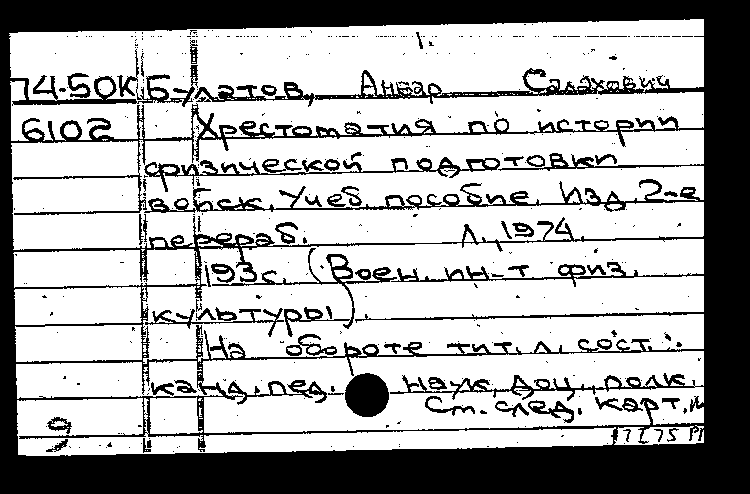 1.
74-50К Булатов, Анвар Салахович
6102 Хрестоматия по истории
физической подготовки
войск. Учеб. пособие. Изд. 2-е
перераб. Л., 1974.
193с. (Воен. ин-т физ.
культуры).
На обороте тит. л. сост.:
канд. пед. наук, доц., полк.
См. след. карт.
9